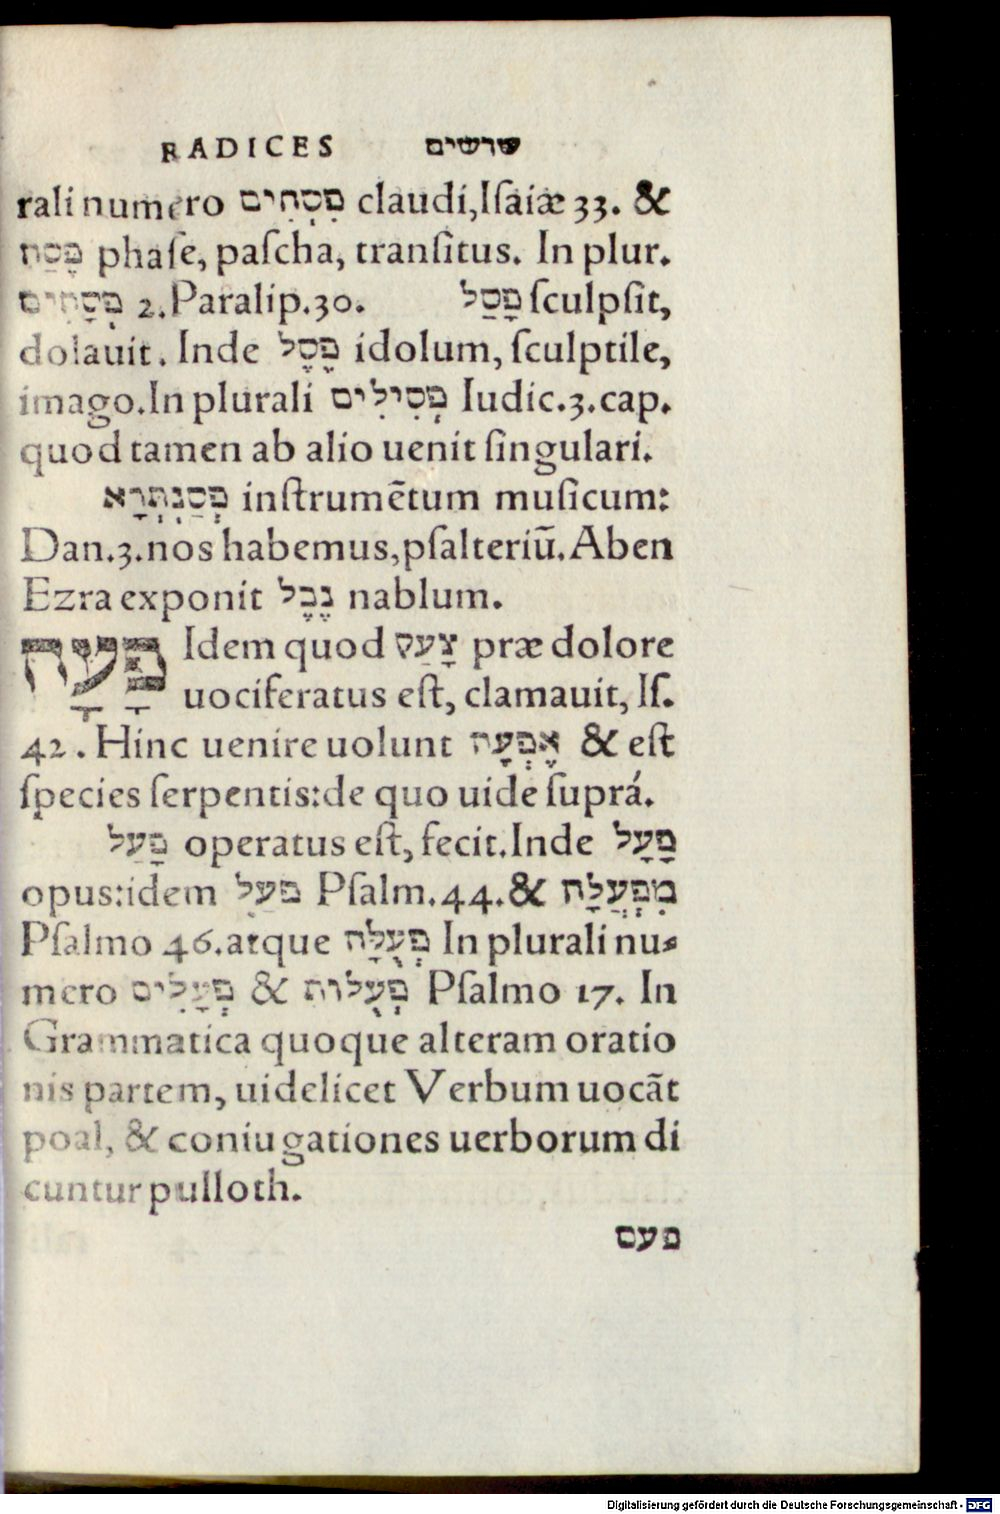 RADICES שרשים
rali numero פִסְחִים claudi, Iſaiæ 33. &
פֶּסַח phaſe, paſcha, tranſitus. In plur.
פְּסָחִים 2. Paralip. 30. פָּסַל ſculpſit,
dolauit. Inde פֶּסֶל idolum, ſculptile,
imago. In plurali פְּסִילִים Iudic. 3. cap.
quod tamen ab alio uenit ſingulari.
פְּסַנְתְּרָא inſtrumẽtum muſicum:
Dan. 3. nos habemus, pſalteriũ. Aben
Ezra exponit נֶבֶל nablum.
פָּעָה Idem quod צָעַק præ dolore
uociferatus eſt, clamauit, Iſ.
42. Hinc uenire uolunt אֶפְעָה & eſt
ſpecies ſerpentis: de quo uide ſuprá.
פָּעַל operatus eſt, fecit. Inde פָּעָל
opus: idem פעל Pſalm. 44. & מִפְעֲלָה
Pſalmo 46. atque פְּעֻלָּה In plurali nu⸗
mero פְּעָלִים & פְּעֻלוֹת Pſalmo 17. In
Grammatica quoque alteram oratio
nis partem, uidelicet Verbum uocãt
poal, & coniugationes uerborum di
cuntur pulloth.
פעם
Digitalisierung gefördert durch die Deutsche Forschungsgemeinschaft - DFG